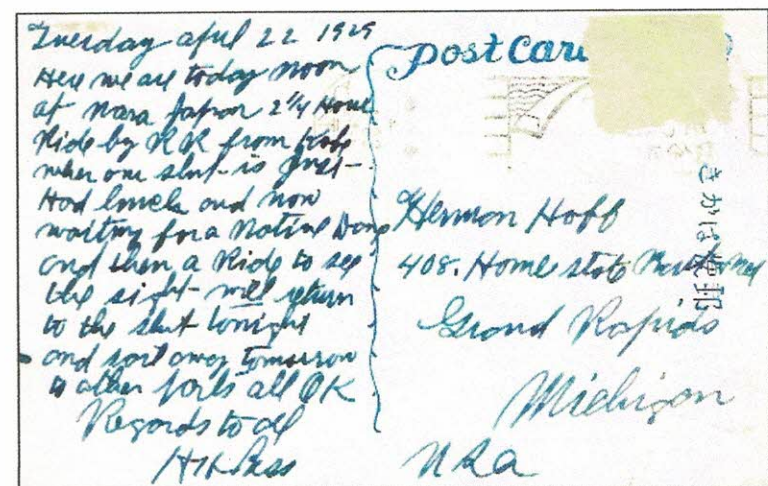 Tuesday april 22 1929
Here we are today noon
at Nara Japan 2 1/4 Hour
Ride by RR from Kobe
when our ship is Just
Had lunch and now
waiting for a Native Dance
and then a Ride to see
the sight will return
to the ship tonight
and sail away tomorrow
to other ports all OK
Regards to all
post Card
きかは便郵
Hermon Hoff
408. Home state
Grand Rapids
Michigan